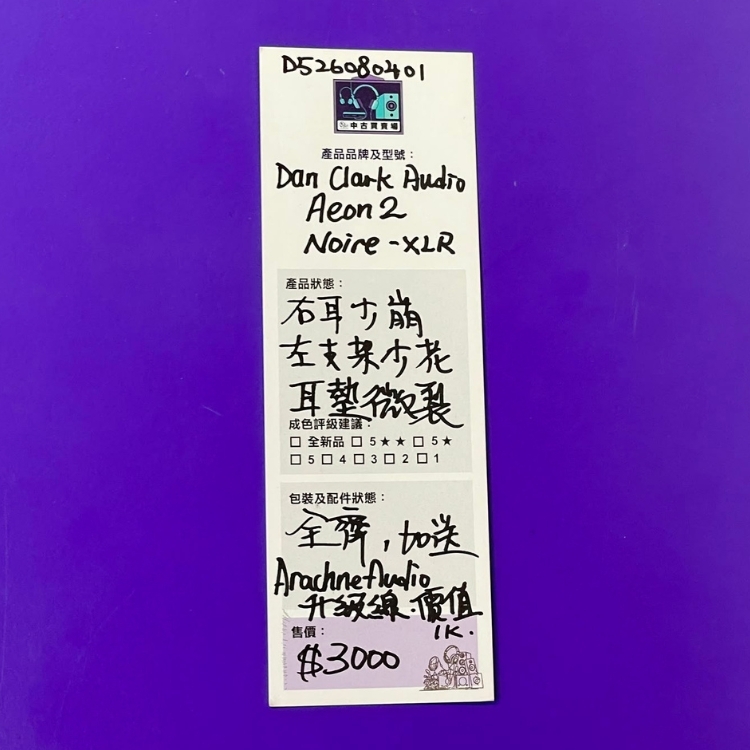 D526080401
中古買賣場
產品品牌及型號：
Dan Clark Audio
Aeon 2
Noire -XLR
產品狀態：
右耳少崩
左支架少花
耳墊微裂
成色評級建議：
☐ 全新品 ☐ 5★★ ☐ 5★
☐ 5 ☐ 4 ☐ 3 ☐ 2 ☐ 1
包裝及配件狀態：
全齊，加送
Arachne Audio
升級線．價值
1K.
售價：
$3000